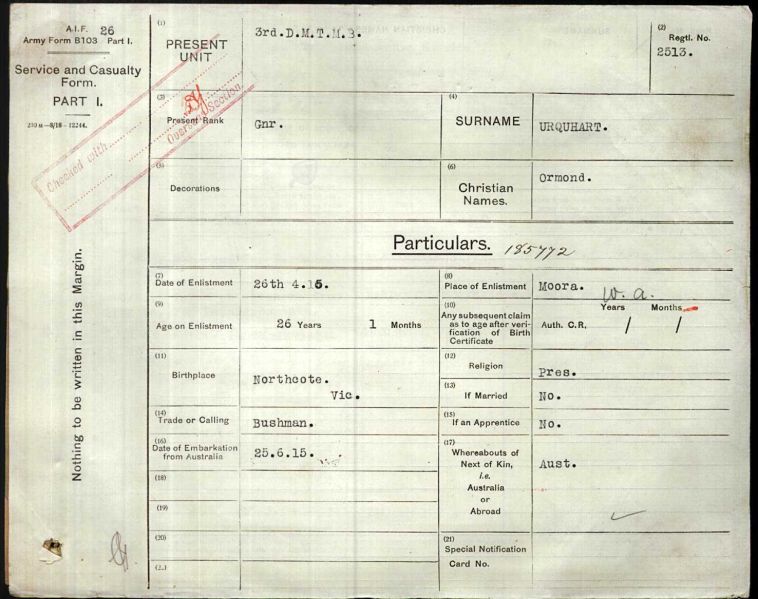 A.I.F. 26
Army Form B103 Part I.
Service and Casualty
Form.
PART I.
210 M—8/18—12244.
Checked with
Overseas Section
Nothing to be written in this Margin.
(1)
PRESENT
UNIT
3rd.D.M.T.M.B.
(2)
Regtl. No.
2513.
(3)
Present Rank
Gnr.
(4)
SURNAME
URQUHART.
(5)
Decorations
(6)
Christian
Names.
Ormond.
Particulars. 185772
(7)
Date of Enlistment
26th 4.15.
(8)
Place of Enlistment
Moora.
W. a.
(9)
Age on Enlistment
26 Years 1 Months
(10)
Any subsequent claim
as to age after veri-
fication of Birth
Certificate
Years Months
Auth. C.R. / /
(11)
Birthplace
Northcote.
Vic.
(12)
Religion
Pres.
(13)
If Married
No.
(14)
Trade or Calling
Bushman.
(15)
If an Apprentice
No.
(16)
Date of Embarkation
from Australia
25.6.15.
(17)
Whereabouts of
Next of Kin,
i.e.
Australia
or
Abroad
Aust.
(18)
(19)
(20)
(21)
Special Notification
Card No.